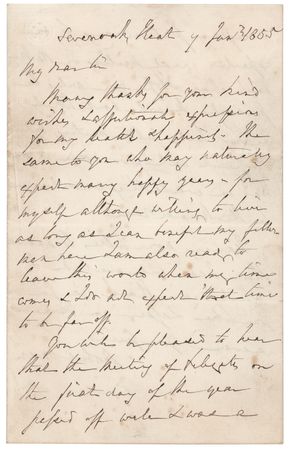 Sevenoaks Kent 9 Jany 1855
My dear Sir
Many thanks for your kind
wishes & affectionate expressions
for my health & happiness - the
same to you who may naturally
expect many happy years - for
myself although willing to live
as long as I can benefit my fellow
men here I am also ready to
leave this world when my time
comes & I do not expect that time
to be far off.
You will be pleased to hear
that the Meeting of Delegates on
the first day of the year
passed off well & was a